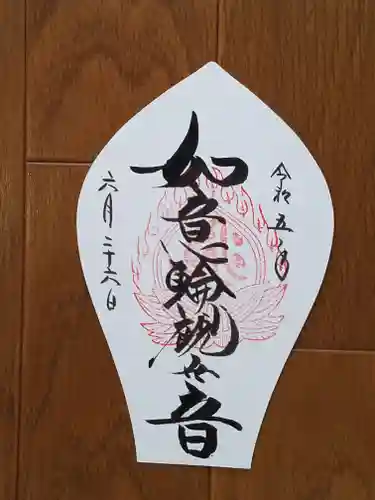 令和五年
如意輪観世音
六月二十六日